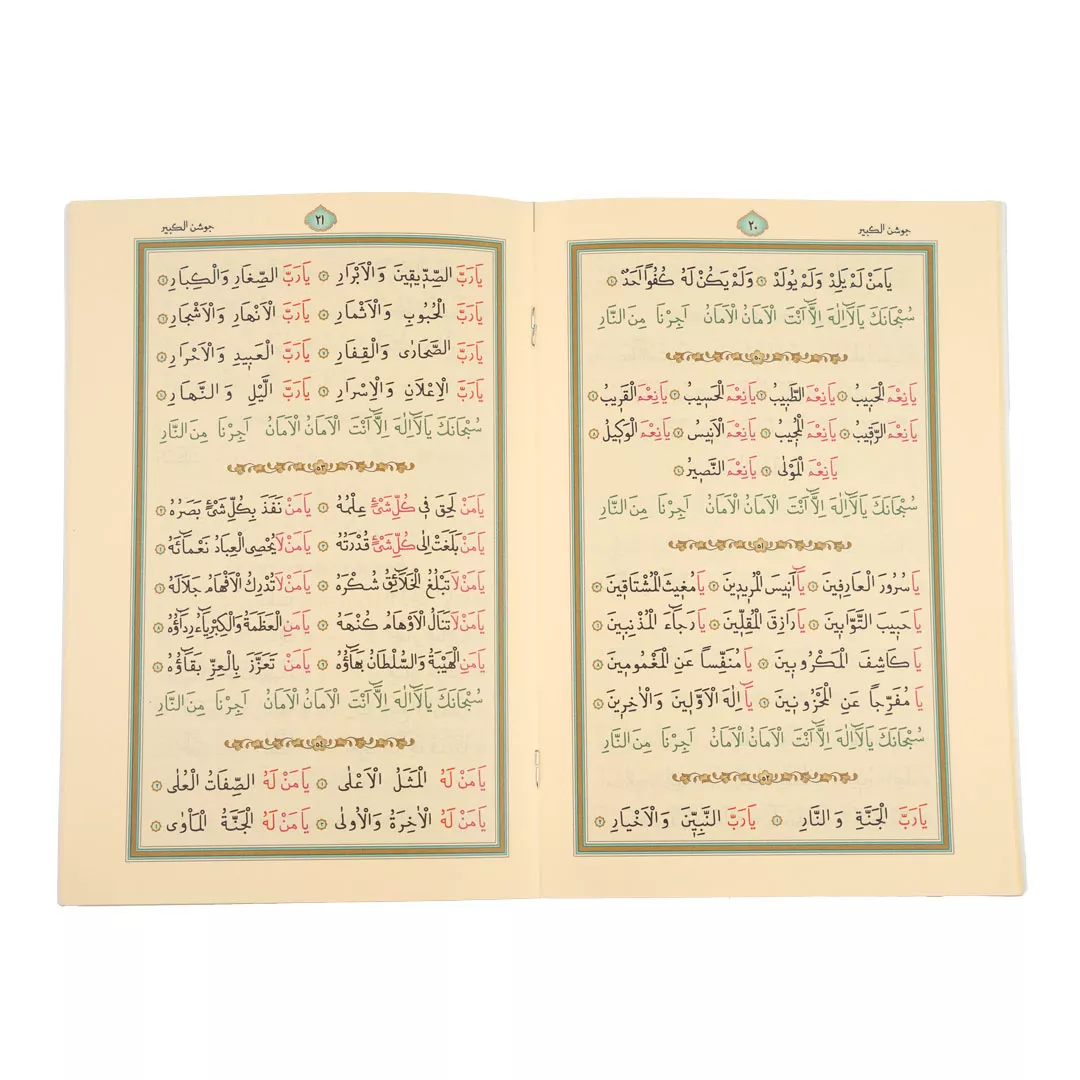 جوشن الكبير
٢٠
يَامَنْ لَمْ يَلِدْ وَلَمْ يُولَدْ ۞ وَلَمْ يَكُنْ لَهُ كُفُوًا اَحَدٌ ۞
سُبْحَانَكَ يَالَآاِلٰهَ اِلَّآ اَنْتَ الْاَمَانُ الْاَمَانُ اَجِرْنَا مِنَ النَّارِ
٥٠
يَانِعْمَ الْحَبِيبُ ۞ يَانِعْمَ الطَّبِيبُ ۞ يَانِعْمَ الْحَسِيبُ ۞ يَانِعْمَ الْقَرِيبُ ۞
يَانِعْمَ الرَّقِيبُ ۞ يَانِعْمَ الْمُجِيبُ ۞ يَانِعْمَ الْاَنِيسُ ۞ يَانِعْمَ الْوَكِيلُ ۞
يَانِعْمَ الْمَوْلٰى ۞ يَانِعْمَ النَّصِيرُ ۞
سُبْحَانَكَ يَالَآاِلٰهَ اِلَّآ اَنْتَ الْاَمَانُ الْاَمَانُ اَجِرْنَا مِنَ النَّارِ
٥١
يَا سُرُورَ الْعَارِفِينَ ۞ يَآ اَنِيسَ الْمُرِيدِينَ ۞ يَا مُغِيثَ الْمُشْتَاقِينَ ۞
يَا حَبِيبَ التَّوَّابِينَ ۞ يَا رَازِقَ الْمُقِلِّينَ ۞ يَا رَجَآءَ الْمُذْنِبِينَ ۞
يَا كَاشِفَ الْمَكْرُوبِينَ ۞ يَا مُنَفِّسًا عَنِ الْمَغْمُومِينَ ۞
يَا مُفَرِّجًا عَنِ الْمَحْزُونِينَ ۞ يَآ اِلٰهَ الْاَوَّلِينَ وَالْاٰخِرِينَ ۞
سُبْحَانَكَ يَالَآاِلٰهَ اِلَّآ اَنْتَ الْاَمَانُ الْاَمَانُ اَجِرْنَا مِنَ النَّارِ
٥٢
يَارَبَّ الْجَنَّةِ وَالنَّارِ ۞ يَارَبَّ النَّبِيِّينَ وَالْاَخْيَارِ ۞
جوشن الكبير
٢١
يَارَبَّ الصِّدِّيقِينَ وَالْاَبْرَارِ ۞ يَارَبَّ الصِّغَارِ وَالْكِبَارِ ۞
يَارَبَّ الْحُبُوبِ وَالْاَثْمَارِ ۞ يَارَبَّ الْاَنْهَارِ وَالْاَشْجَارِ ۞
يَارَبَّ الصَّحَارٰى وَالْقِفَارِ ۞ يَارَبَّ الْعَبِيدِ وَالْاَحْرَارِ ۞
يَارَبَّ الْاِعْلَانِ وَالْاِسْرَارِ ۞ يَارَبَّ الَّيْلِ وَالنَّهَارِ ۞
سُبْحَانَكَ يَالَآاِلٰهَ اِلَّآ اَنْتَ الْاَمَانُ الْاَمَانُ اَجِرْنَا مِنَ النَّارِ
٥٣
يَامَنْ لَحِقَ فِي كُلِّ شَيْءٍ عِلْمُهُ ۞ يَامَنْ نَفَذَ بِكُلِّ شَيْءٍ بَصَرُهُ ۞
يَامَنْ بَلَغَتْ اِلٰى كُلِّ شَيْءٍ قُدْرَتُهُ ۞ يَامَنْ لَا يُحْصِي الْعِبَادُ نَعْمَآئَهُ ۞
يَامَنْ لَا تَبْلُغُ الْخَلَآئِقُ شُكْرَهُ ۞ يَامَنْ لَا تُدْرِكُ الْاَفْهَامُ جَلَالَهُ ۞
يَامَنْ لَا تَنَالُ الْاَوْهَامُ كُنْهَهُ ۞ يَامَنِ الْعَظَمَةُ وَالْكِبْرِيَآءُ رِدَآؤُهُ ۞
يَامَنِ الْهَيْبَةُ وَالسُّلْطَانُ بَهَآؤُهُ ۞ يَامَنْ تَعَزَّزَ بِالْعِزِّ بَقَآؤُهُ ۞
سُبْحَانَكَ يَالَآاِلٰهَ اِلَّآ اَنْتَ الْاَمَانُ الْاَمَانُ اَجِرْنَا مِنَ النَّارِ
٥٤
يَامَنْ لَهُ الْمَثَلُ الْاَعْلٰى ۞ يَامَنْ لَهُ الصِّفَاتُ الْعُلٰى ۞
يَامَنْ لَهُ الْاٰخِرَةُ وَالْاُولٰى ۞ يَامَنْ لَهُ الْجَنَّةُ الْمَأْوٰى ۞